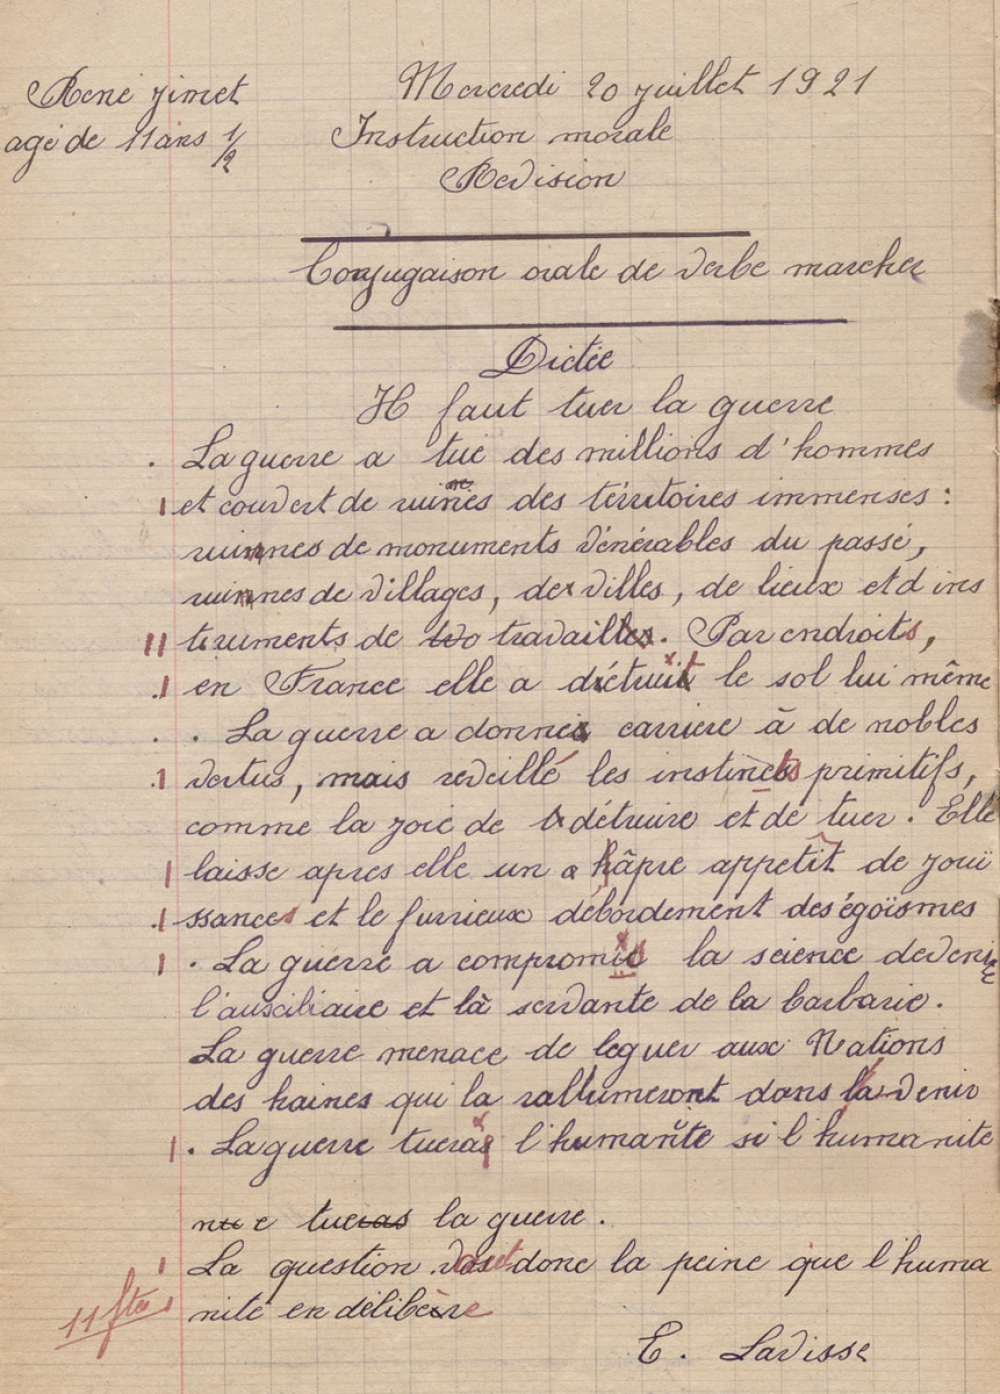 René Jimet
agé de 11 ans 1/2
Mercredi 20 juillet 1921
Instruction morale
Revision
Conjugaison orale de verbe marcher
Dictée
Il faut tuer la guerre
La guerre a tué des millions d'hommes
et couvert de ruines des térritoires immenses :
ruinnes de monuments vénérables du passé,
ruinnes de villages, de villes, de lieux et d ins
truments de travail. Par endroits,
en France elle a détruit le sol lui même
. La guerre a donné carriere à de nobles
vertus, mais reveillé les instincts primitifs,
comme la joie de détruire et de tuer. Elle
laisse apres elle un âpre appetit de jouï
ssances et le furrieux débordement des égoïsmes
. La guerre a compromis la science devenue
l'auxciliaire et là servante de la barbarie.
La guerre menace de leguer aux Nations
des haines qui la rallumeront dans l'avenir
. La guerre tuera l'humanité si l'humanite
ne tue la guerre.
La question vaut donc la peine que l'huma
nité en délibère
11 ftes
E. Lavisse